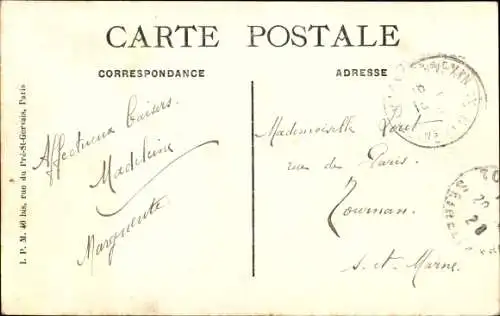 CARTE POSTALE
CORRESPONDANCE
ADRESSE
I. P. M. 40 bis, rue du Pré-St-Gervais, Paris
Affectueux baisers.
Madeleine
Marguerite
Mademoiselle
rue de Paris.
Tournan.
S. et. Marne.